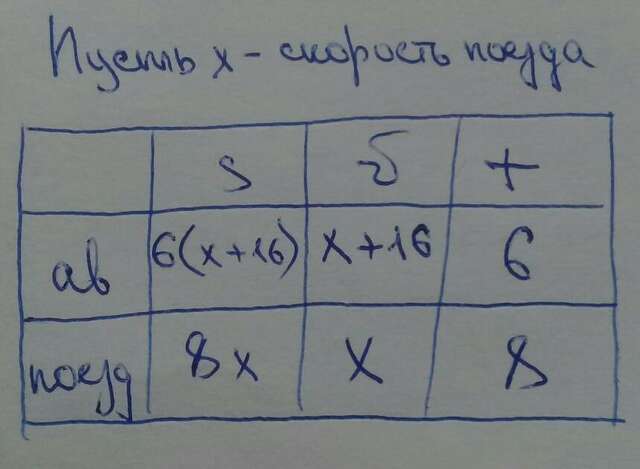 Пусть x - скорость поезда
s v t
ав 6(x+16) x+16 6
поезд 8x x 8